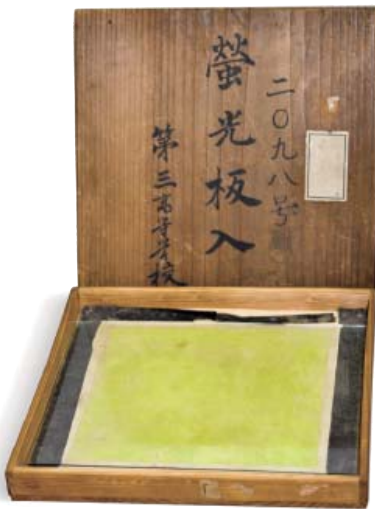 二〇九八号
螢光板入
第三高等学校